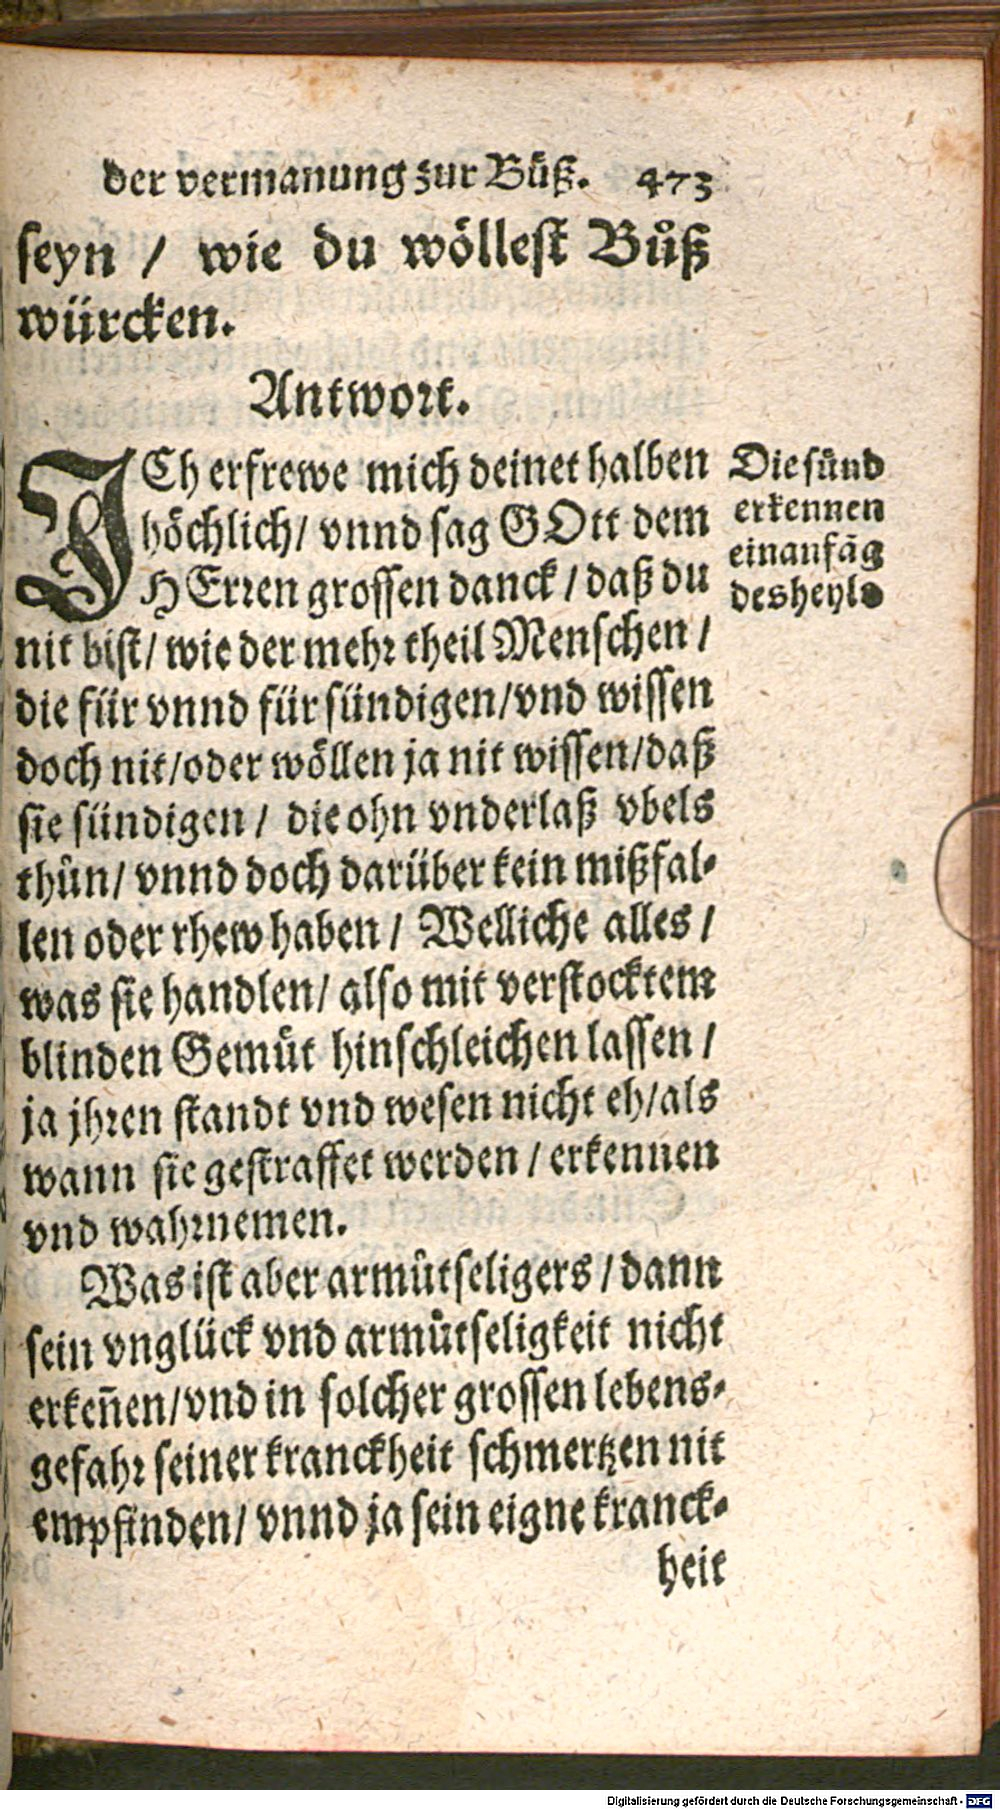 der vermanung zur Bůß. 473
seyn / wie du wöllest Bůß
würcken.
Antwort.
ICh erfrewe mich deinet halben
höchlich/ vnnd sag GOtt dem
HErren grossen danck / daß du
nit bist/ wie der mehr theil Menschen /
die für vnnd für sündigen/vnd wissen
doch nit/oder wöllen ja nit wissen/daß
sie sündigen / die ohn vnderlaß vbels
thůn/ vnnd doch darüber kein mißfal-
len oder rhew haben / Welliche alles /
was sie handlen/ also mit verstocktem
blinden Gemůt hinschleichen lassen /
ja jhren standt vnd wesen nicht eh/als
wann sie gestraffet werden / erkennen
vnd wahrnemen.
Was ist aber armůtseligers / dann
sein vnglück vnd armůtseligkeit nicht
erkeñen/vnd in solcher grossen lebens-
gefahr seiner kranckheit schmertzen nit
empfinden/ vnnd ja sein eigne kranck-
heit
Die sünd
erkennen
ein anfāg
des heyls
Digitalisierung gefördert durch die Deutsche Forschungsgemeinschaft - DFG